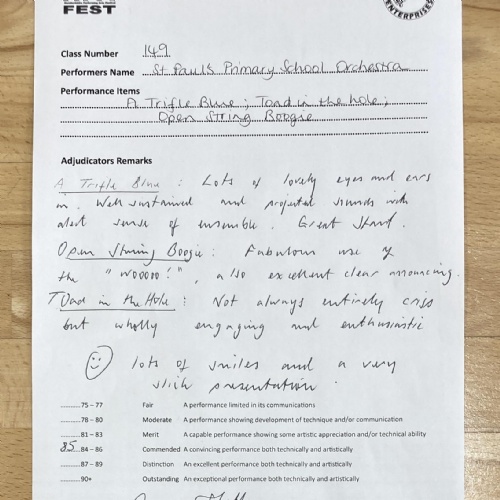 FEST
ENTERPRISES
Class Number 149
Performers Name St Paul's Primary School Orchestra
Performance Items
A Trifle Blue; Toad in the hole;
Open String Boogie
Adjudicators Remarks
A Trifle Blue : Lots of lovely eyes and ears
on. Well sustained and projected sounds with
alert sense of ensemble. Great start.
Open String Boogie : Fabulous use of
the "woooo!", also excellent clear announcing.
Toad in the Hole : Not always entirely crisp
but wholly engaging and enthusiastic
lots of smiles and a very
slick presentation.
75 – 77 Fair A performance limited in its communications
78 – 80 Moderate A performance showing development of technique and/or communication
81 – 83 Merit A capable performance showing some artistic appreciation and/or technical ability
85 84 – 86 Commended A convincing performance both technically and artistically
87 – 89 Distinction An excellent performance both technically and artistically
90+ Outstanding An exceptional performance both technically and artistically